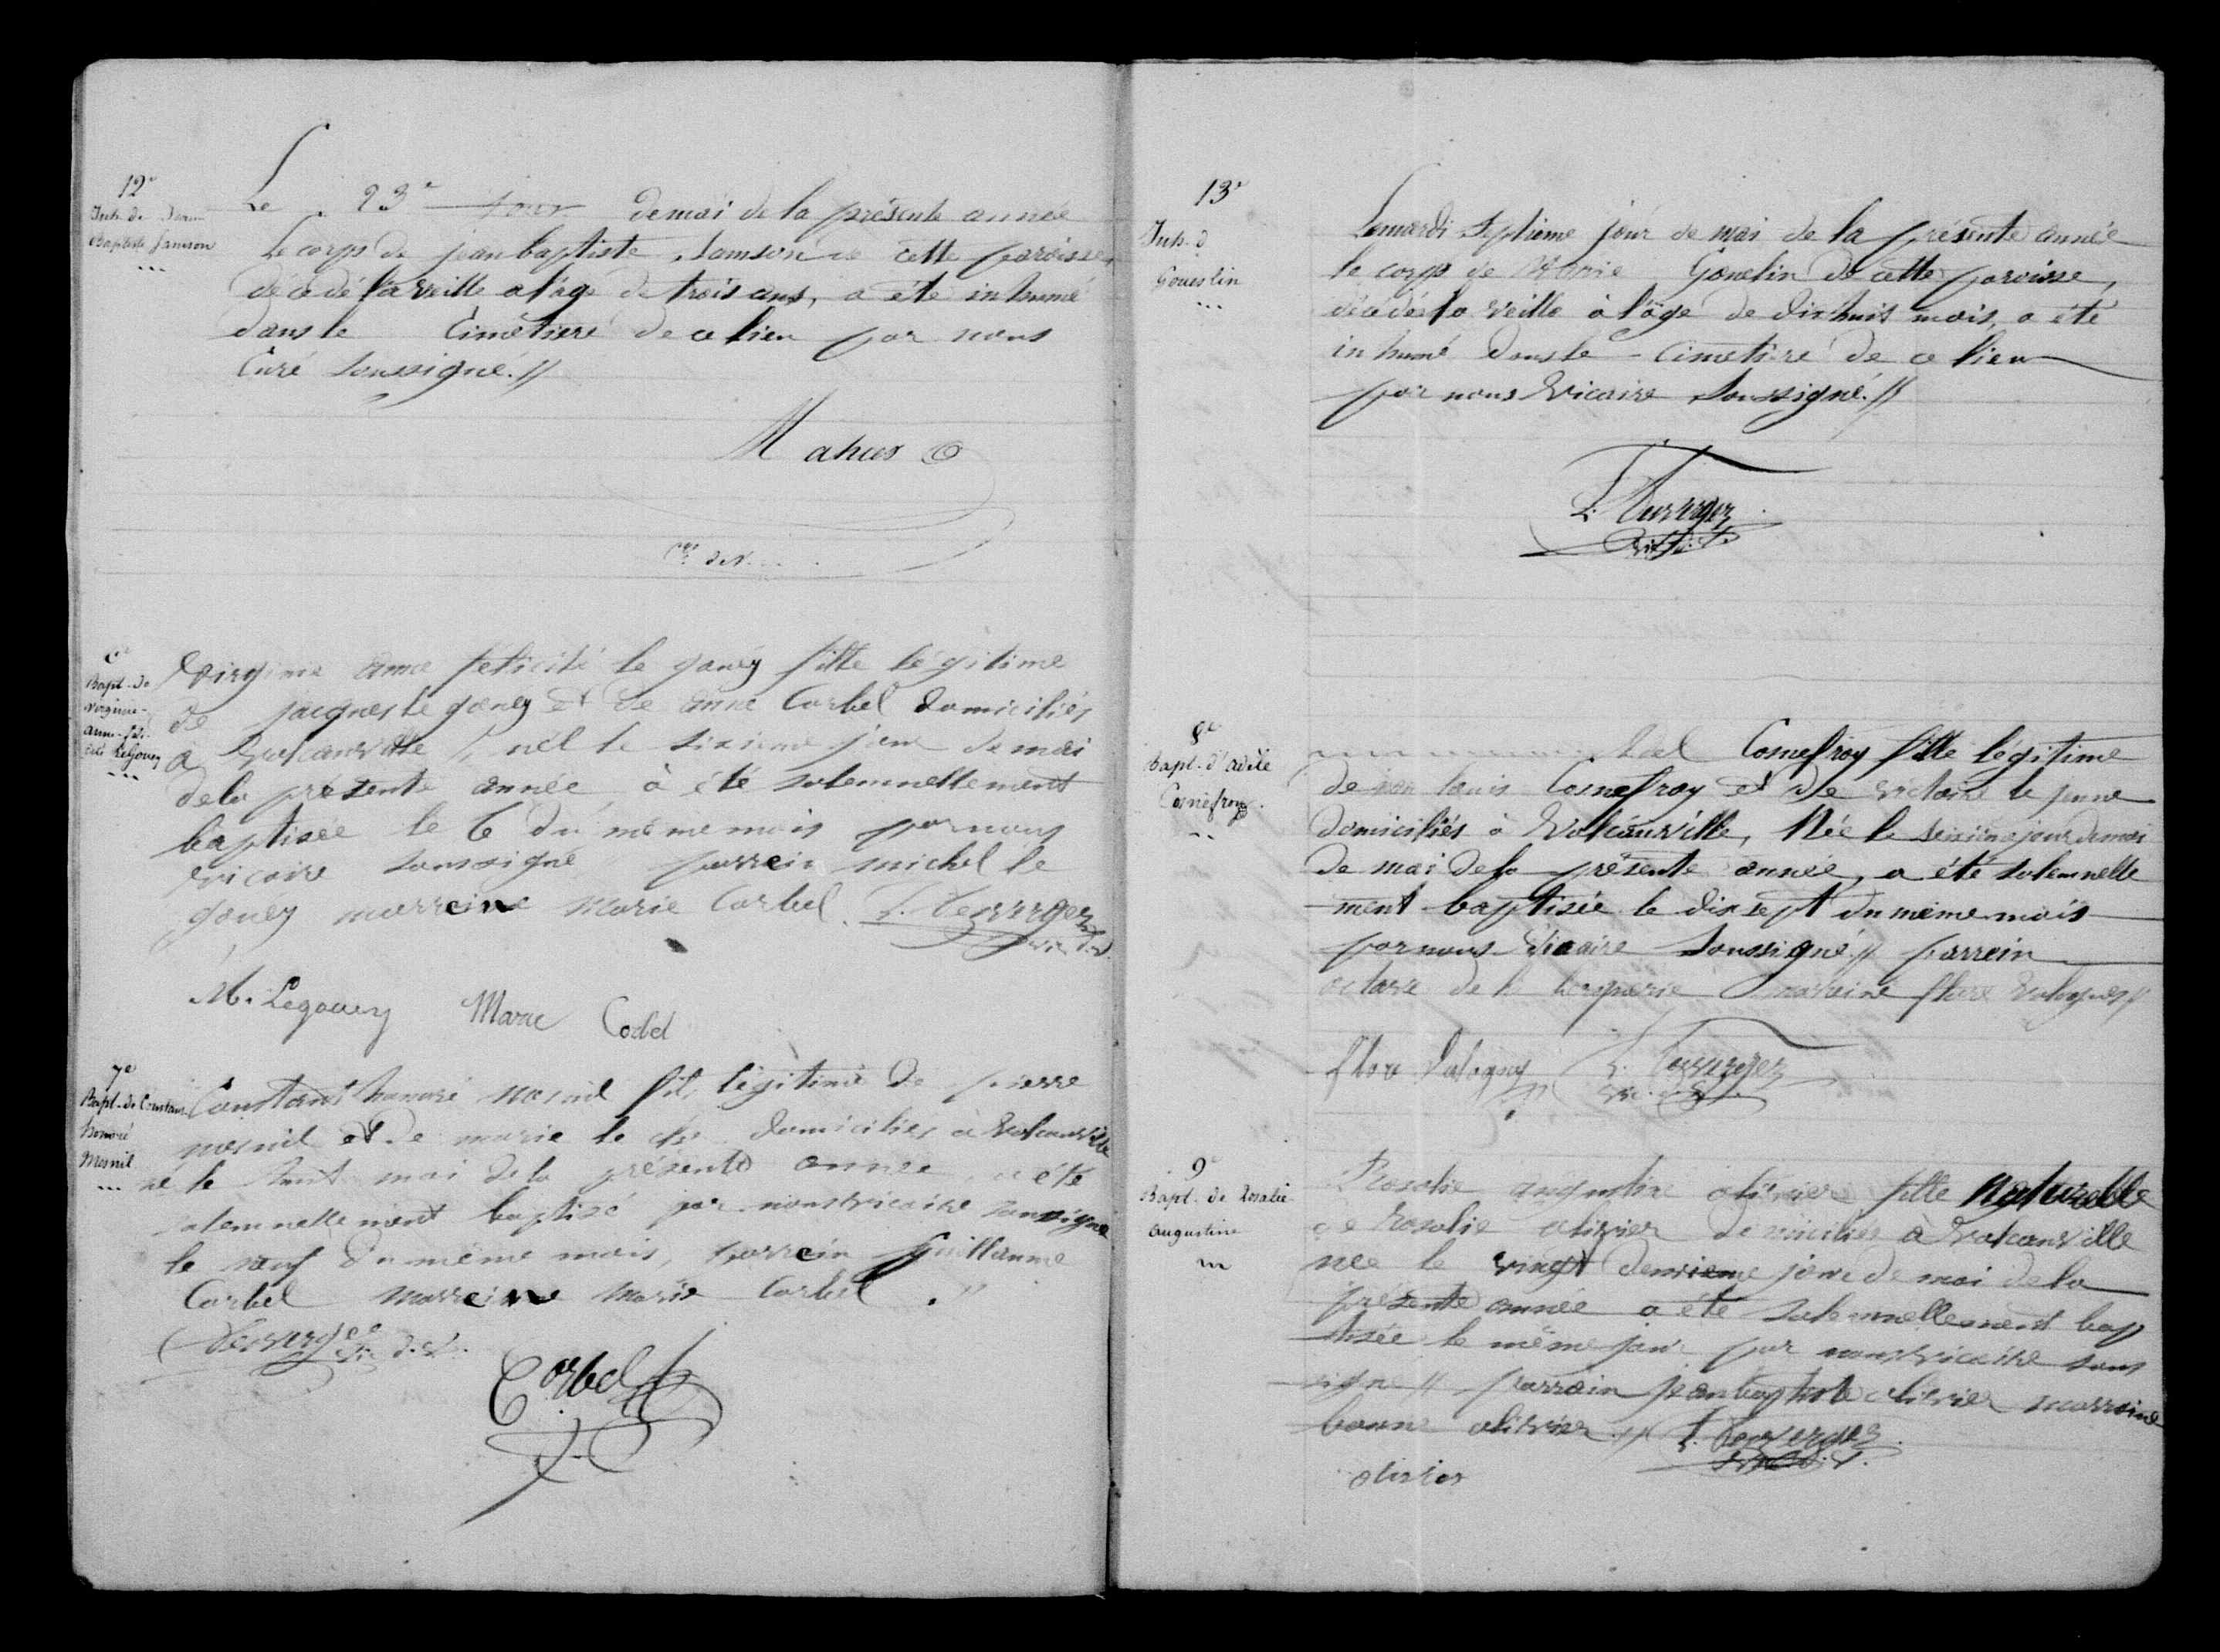 12e
Inh. de Jean
Baptiste Samson
Le 23e jour de mai de la présente année
Le corps de jean baptiste Samson de cette paroisse,
décédé la veille a l'âge de trois ans, a été inhumé
dans le Cimetiere de ce lieu par nous
Curé soussigné.//
Mahus
6e
Bapt. de
Virginie
anne féli-
cité LeGouey
Virginie anne felicité le gouey fille légitime
de jacques le gouey et de anne Corbel domiciliés
a Valcanville, née le sixieme jour de mai
de la présente année, à été solemnellement
baptisée le 6 du même mois par nous
vicaire soussigné parrein michel le
gouey marreine Marie Corbel.
M. Legouey Marie Corbel
7e
Bapt. de Constant
honoré
Mesnil
Constant honoré mesnil fils légitime de pierre
mesnil et de marie le domiciliés a Valcanville
né le huit mai de la présente année, a été
solemnellement baptisé par nous vicaire soussigné
le neuf du même mois, parrein Guillaume
Corbel marreine marie Corbel.
Corbel
13e
Inh. d
Gouslin
Le mardi septieme jour de mai de la présente année
le corps de Marie Gouelin de cette paroisse,
décédé la veille à l'âge de dix huit mois, a été
inhumé dans le Cimetiere de ce lieu
par nous vicaire soussigné.//
8e
Bapt. d'adèle
Cosnefroy
Cosnefroy fille legitime
de louis Cosnefroy et de victoire le jeune
domiciliés à Valcanville, Née le seizieme jour de mai
de mai de la présente année, a été solemnelle
ment baptisée le dix sept du même mois
par nous vicaire soussigné.// parrein
octave de la marreine flore Valognes//
flore Valognes
9e
Bapt. de Rosalie
augustine
Rosalie augustine olivier fille Naturelle
de Rosalie olivier domiciliée à Valcanville
née le vingt deuxieme jour de mai de la
présente année a été solemnellement bap
tisée le même jour par nous vicaire sous
signé // parrein jean baptiste olivier marreine
bonne olivier.//
olivier